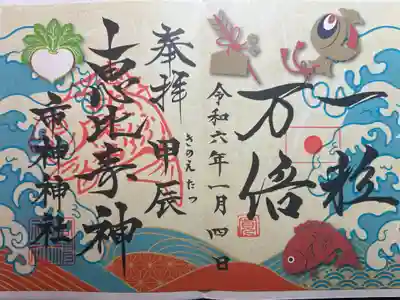 一粒
万倍
令和六年一月四日
奉拝
甲辰
きのえたつ
恵比寿神
市神神社